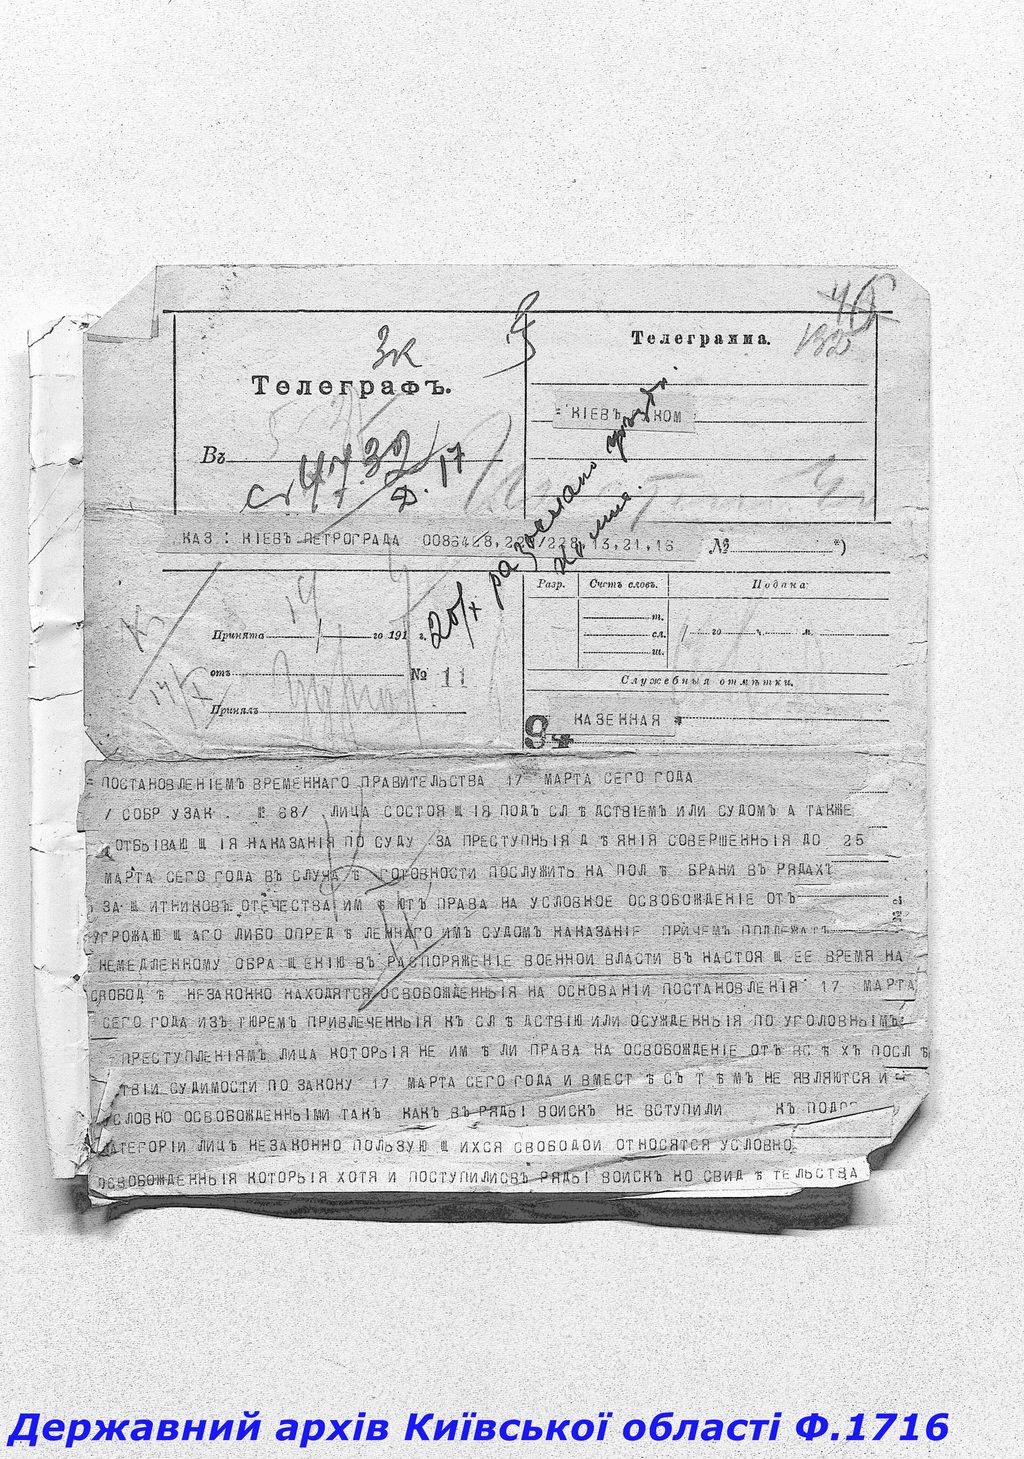 4
132
Зк
Телеграфъ.
Телеграмма.
=КІЕВЪ КОМ
Въ
Д. 17
КАЗ: КІЕВЪ ПЕТРОГРАДА 0086428,228/228,13,21,16 № *)
20/X разослано
14
Разр. Счетъ словъ. Подана:
т.
Принята го 191 г.
сл. го ч. м.
ш.
отъ № 11
Служебныя отмѣтки.
14/X
Принялъ
9 КАЗЕННАЯ
=ПОСТАНОВЛЕНІЕМЪ ВРЕМЕННАГО ПРАВИТЕЛЬСТВА 17 МАРТА СЕГО ГОДА
/СОБР УЗАК. № 88/ ЛИЦА СОСТОЯЩІЯ ПОДЪ СЛѢДСТВІЕМЪ ИЛИ СУДОМЪ А ТАКЖЕ
ОТБЫВАЮЩІЯ НАКАЗАНІЯ ПО СУДУ ЗА ПРЕСТУПНЫЯ ДѢЯНІЯ СОВЕРШЕННЫЯ ДО 25
МАРТА СЕГО ГОДА ВЪ СЛУЧАѢ ГОТОВНОСТИ ПОСЛУЖИТЬ НА ПОЛѢ БРАНИ ВЪ РЯДАХЪ
ЗАЩИТНИКОВЪ ОТЕЧЕСТВА ИМѢЮТЪ ПРАВА НА УСЛОВНОЕ ОСВОБОЖДЕНІЕ ОТЪ
УГРОЖАЮЩАГО ЛИБО ОПРЕДѢЛЕННАГО ИМЪ СУДОМЪ НАКАЗАНІЕ ПРИЧЕМЪ ПОДЛЕЖАТЪ
НЕМЕДЛЕННОМУ ОБРАЩЕНІЮ ВЪ РАСПОРЯЖЕНІЕ ВОЕННОЙ ВЛАСТИ ВЪ НАСТОЯЩЕЕ ВРЕМЯ НА
СВОБОДѢ НЕЗАКОННО НАХОДЯТСЯ ОСВОБОЖДЕННЫЯ НА ОСНОВАНІИ ПОСТАНОВЛЕНІЯ 17 МАРТА
СЕГО ГОДА ИЗЪ ТЮРЕМЪ ПРИВЛЕЧЕННЫЯ КЪ СЛѢДСТВІЮ ИЛИ ОСУЖДЕННЫЯ ПО УГОЛОВНЫМЪ
ПРЕСТУПЛЕНІЯМЪ ЛИЦА КОТОРЫЯ НЕ ИМѢЛИ ПРАВА НА ОСВОБОЖДЕНІЕ ОТЪ ВСѢХЪ ПОСЛѢ
ТВІИ СУДИМОСТИ ПО ЗАКОНУ 17 МАРТА СЕГО ГОДА И ВМЕСТѢ СЪ ТѢМЪ НЕ ЯВЛЯЮТСЯ И
УСЛОВНО ОСВОБОЖДЕННЫМИ ТАКЪ КАКЪ ВЪ РЯДЫ ВОИСКЪ НЕ ВСТУПИЛИ КЪ ПОДОБ
КАТЕГОРІИ ЛИЦЪ НЕЗАКОННО ПОЛЬЗУЮЩИХСЯ СВОБОДОЙ ОТНОСЯТСЯ УСЛОВНО
ОСВОБОЖДЕННЫЯ КОТОРЫЯ ХОТЯ И ПОСТУПИЛИСВЪ РЯДЫ ВОИСКЪ НО СВИДѢТЕЛЬСТВА
Державний архів Київської області Ф.1716